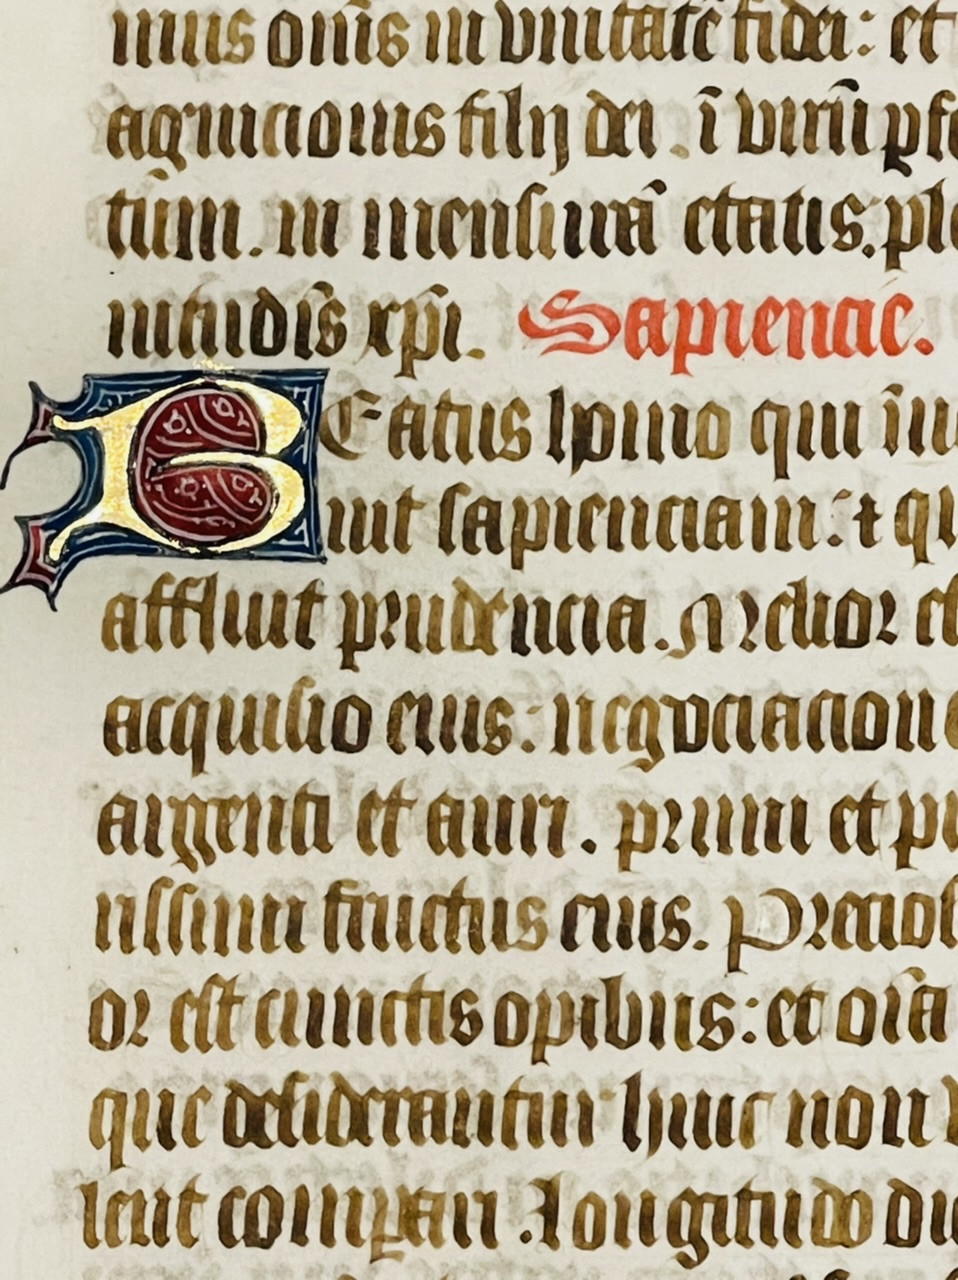 mus om̄s in vnitatē fidei: et
agnicionis filij dei . ī virū ꝑfe
tūm . in mensurā etatis . ple
nitudīs xp̄i . Sapiencie .
BEatus hōmo qui īuē
nit sapienciam : ⁊ qui
affluit prudencia . Melior est
acquisio eius : negociacione
argenti et auri . primi et pu
rissimi fructus eius . Precios
or est cunctis opibus : et oīa
que desiderantur huic non
lent comꝑari . Longitudo di